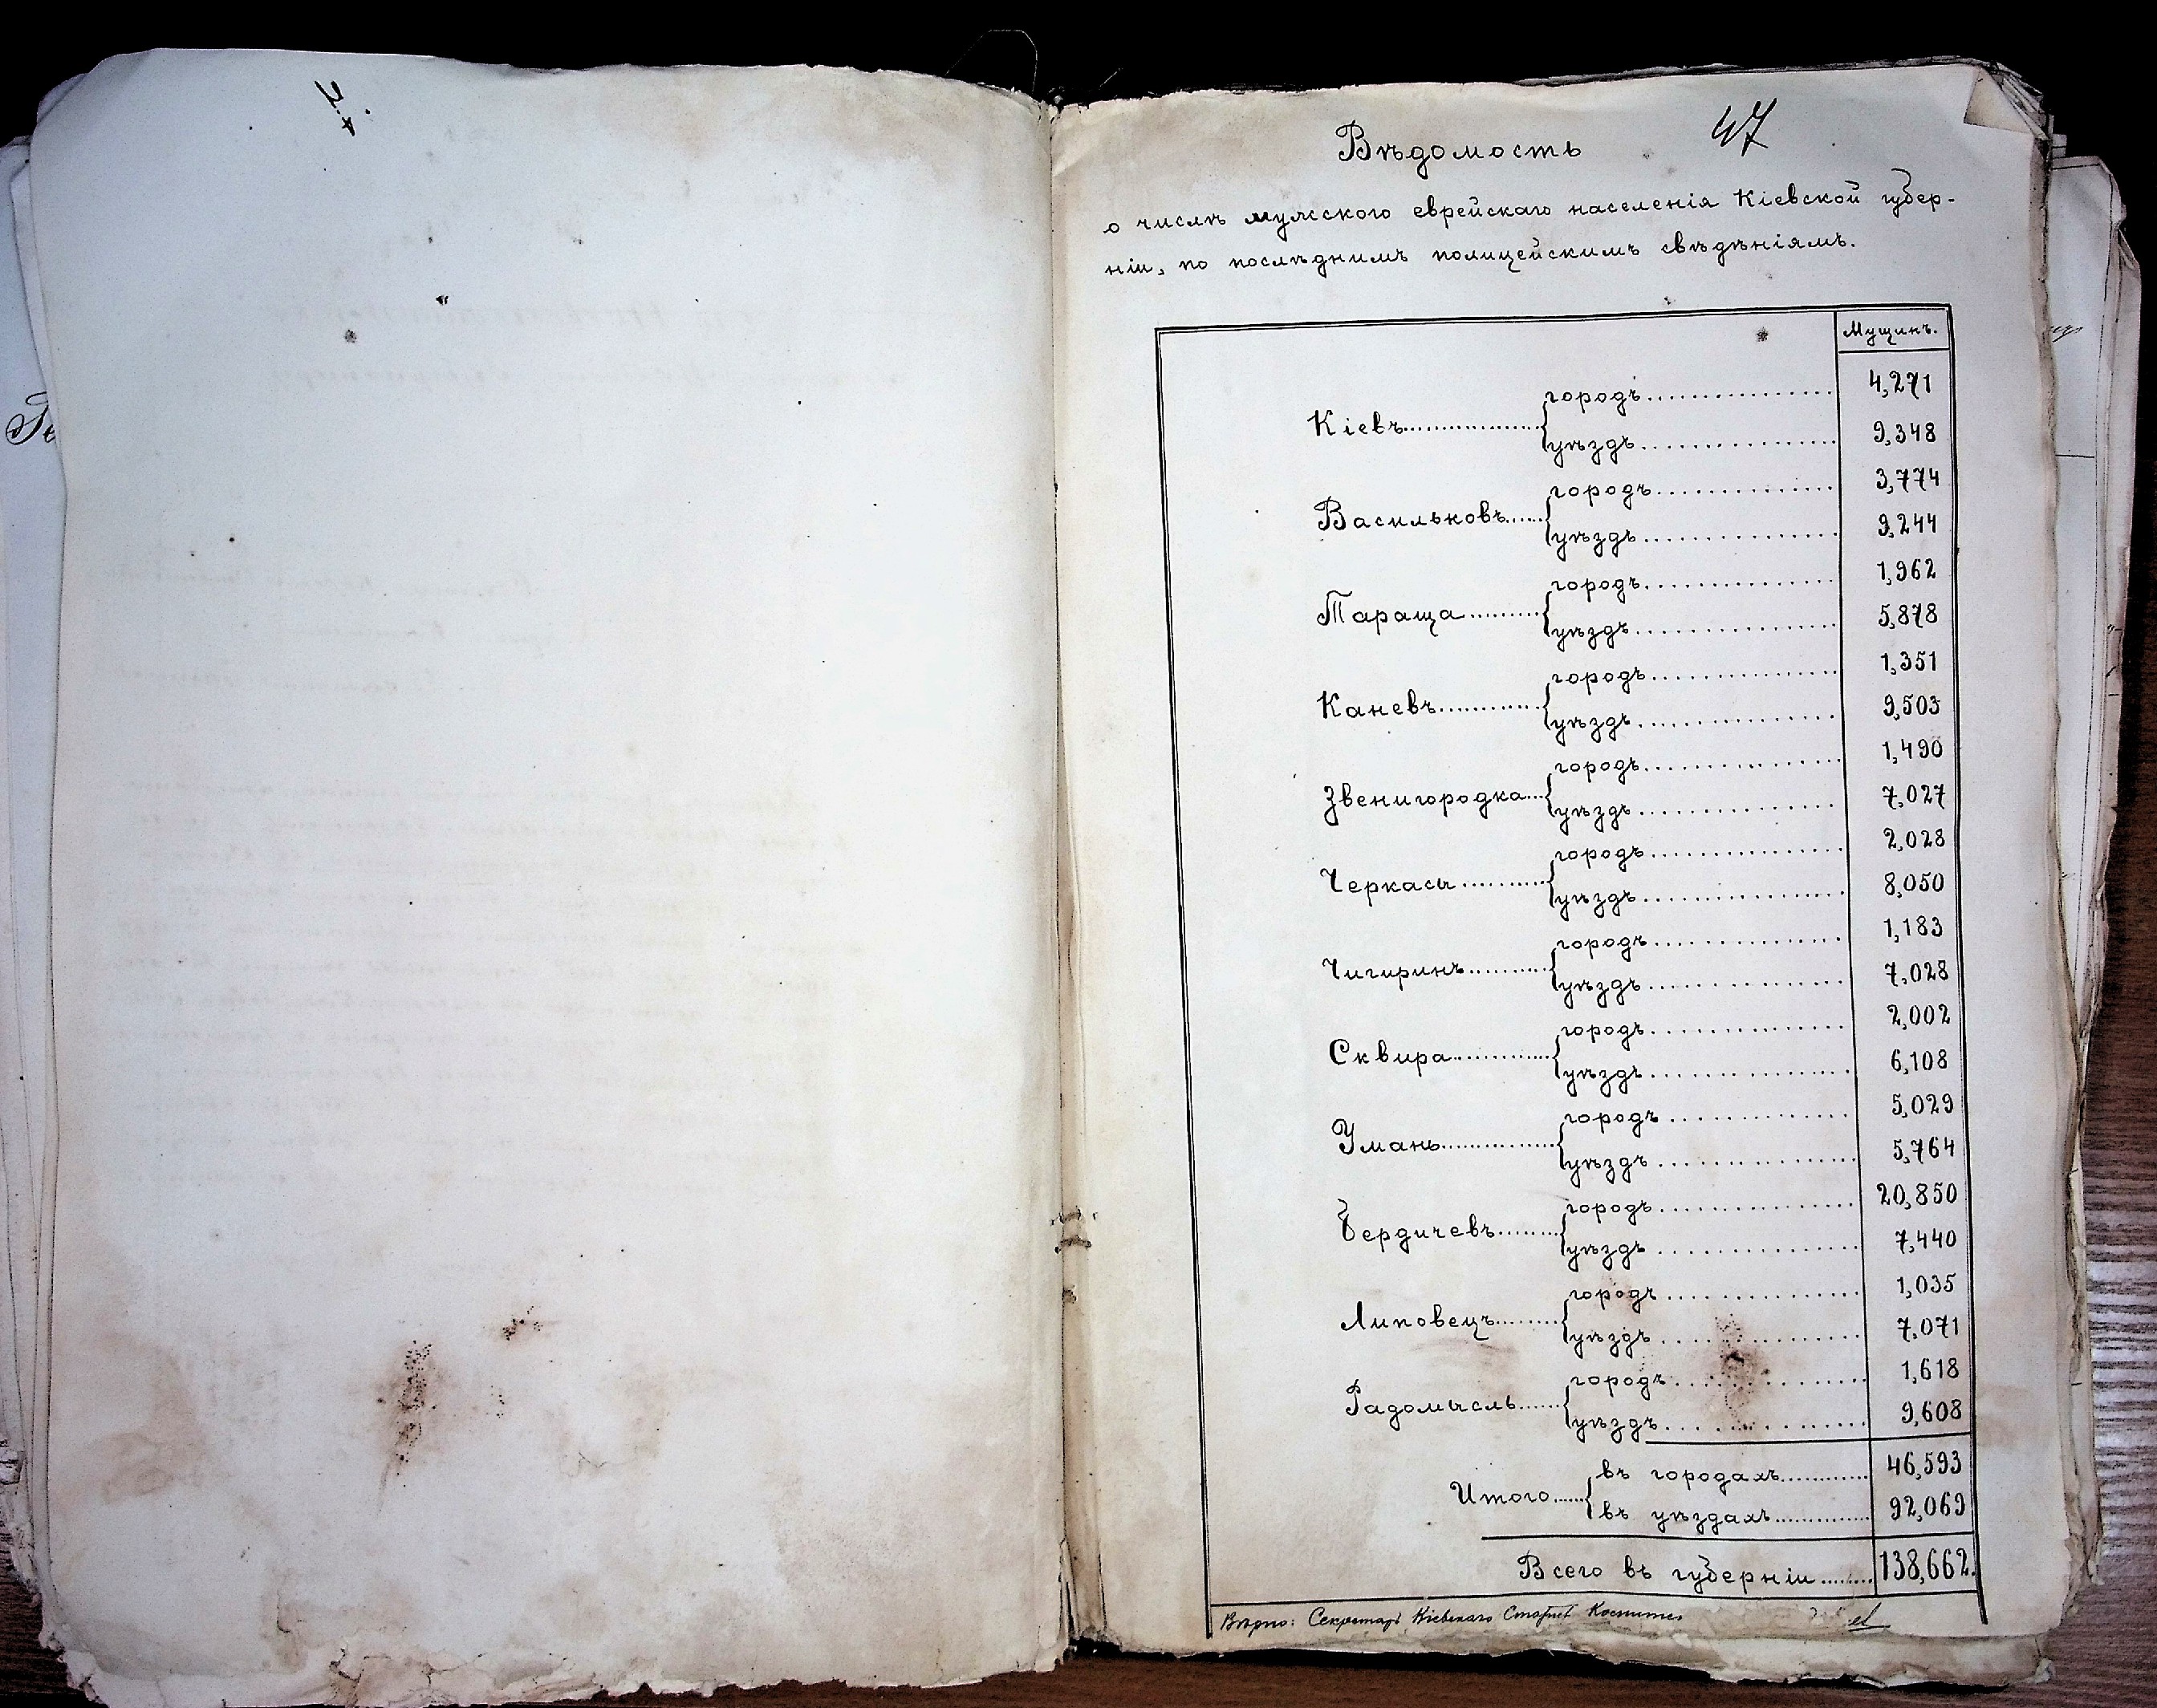 47
Вѣдомость
о числѣ мужскаго еврейскаго населенія Кіевской губер-
ніи, по послѣднимъ полицейскимъ свѣдѣніямъ.
Мущинъ.
Кіевъ
городъ 4,271
уѣздъ 9,348
Васильковъ
городъ 3,774
уѣздъ 9,244
Тараща
городъ 1,962
уѣздъ 5,878
Каневъ
городъ 1,351
уѣздъ 9,503
Звенигородка
городъ 1,490
уѣздъ 7,027
Черкасы
городъ 2,028
уѣздъ 8,050
Чигиринъ
городъ 1,183
уѣздъ 7,028
Сквира
городъ 2,002
уѣздъ 6,108
Умань
городъ 5,029
уѣздъ 5,764
Бердичевъ
городъ 20,850
уѣздъ 7,440
Липовецъ
городъ 1,035
уѣздъ 7,071
Радомысль
городъ 1,618
уѣздъ 9,608
Итого
въ городахъ 46,593
въ уѣздахъ 92,069
Всего въ губерніи 138,662.
Вѣрно: Секретарь Кіевскаго